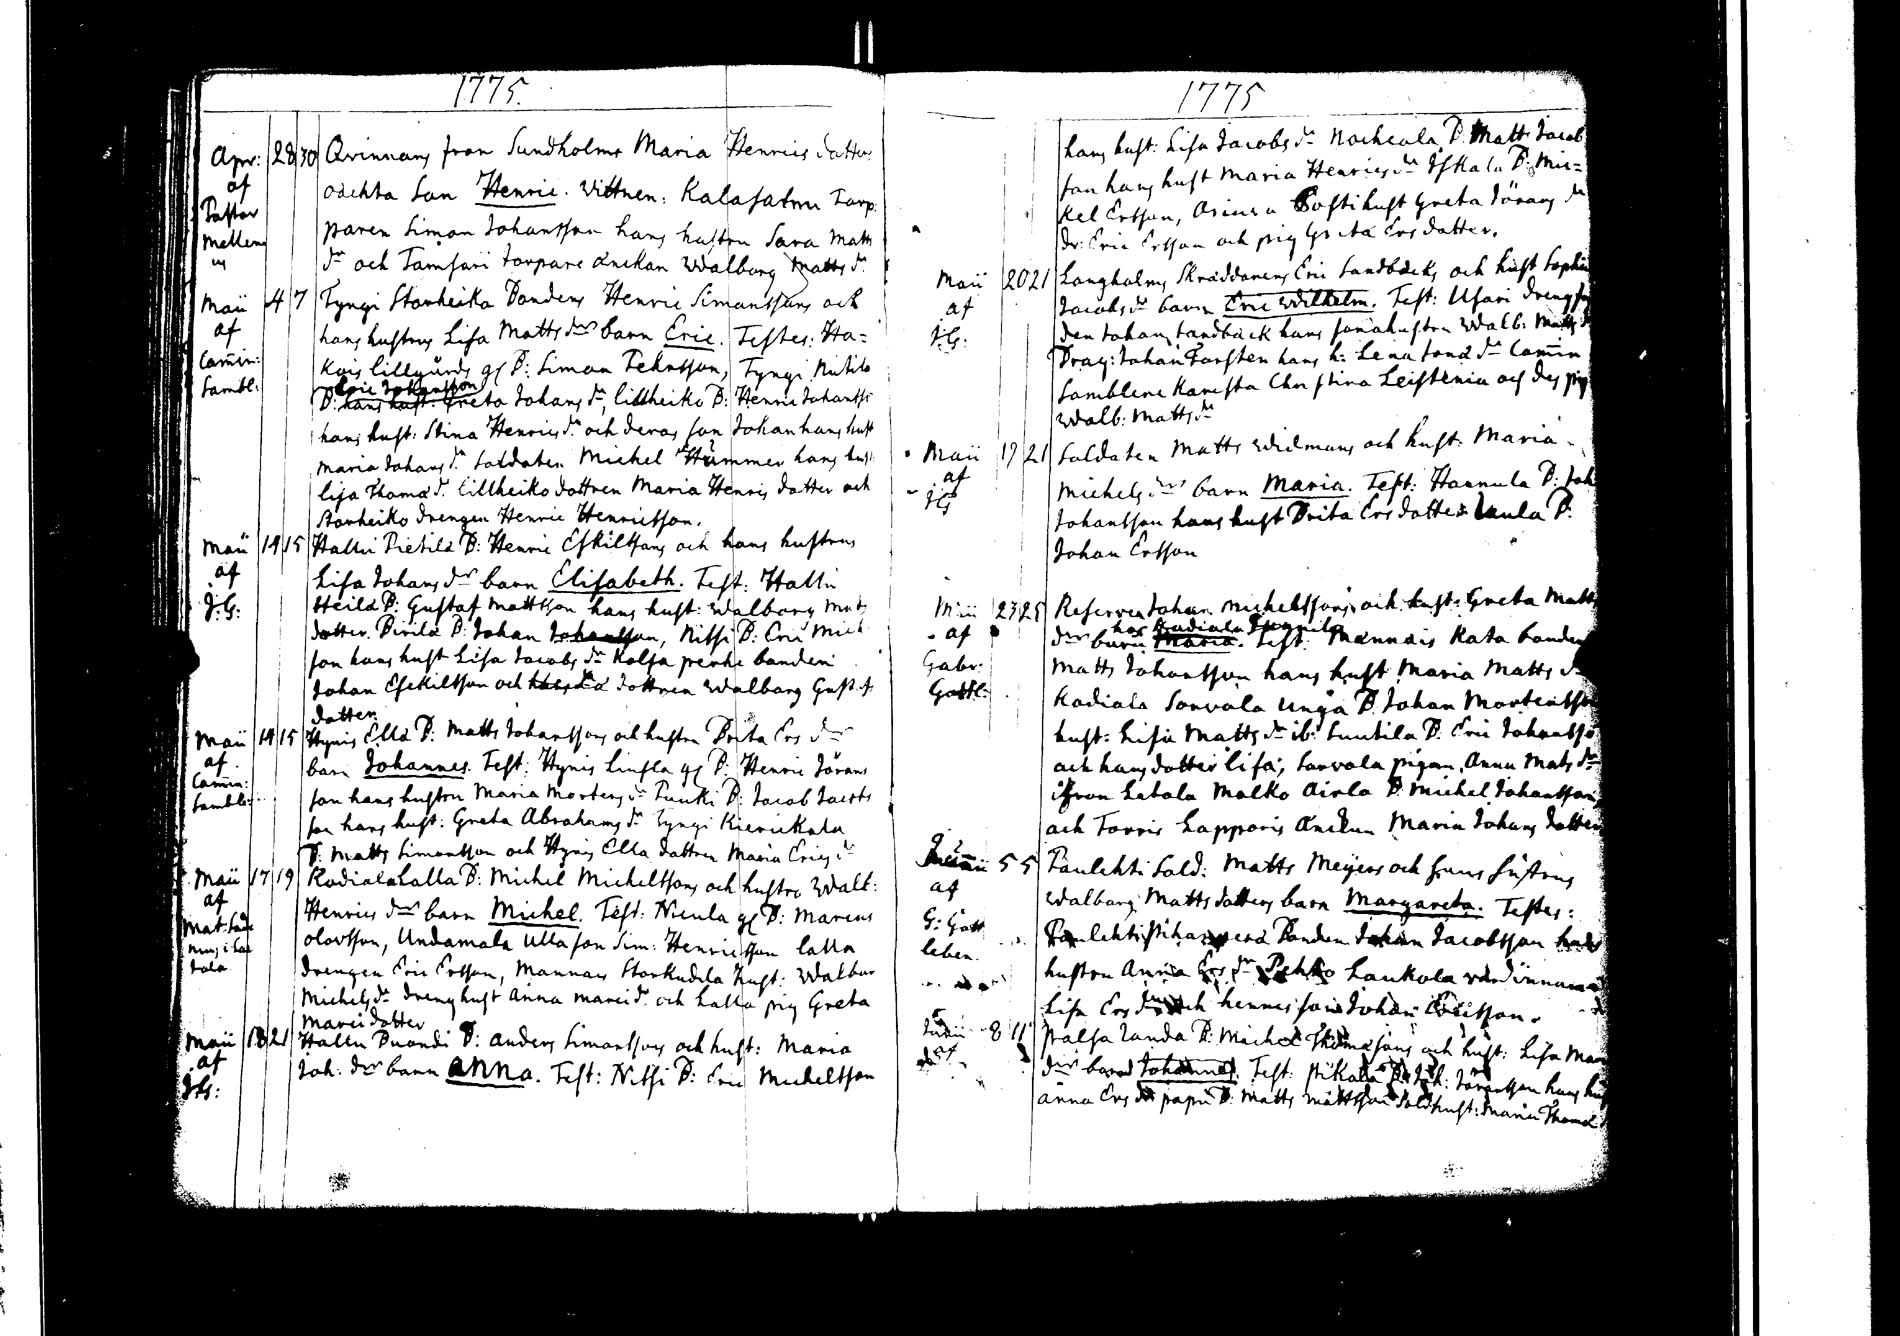 1775.
Apr: 28 30 Qvinnans från Sundholms Maria Henrics dotters
af oächta Son Henric. Vittnen: Kalasatnu Torp:
Pastor
Mellen paren Simon Johansson hans hustru Sara Matts
dr och Tamsari torpare änckan Walborg Matts dr
Maii 4 7 Tyngi Storheika Bondens Henric Simonssons och
af hans hustrus Lisa Matts drs barn Eric. Testes: Ha=
Camin: kois lillgårds gl B: Simon Pehrsson, Tyngi
Sambl: Eric Johansson
B: hans hust: Greta Johans dr, lillheiko B: Henric Johansss
hans hust: Stina Henrics dr och deras son Johan hans hust
Maria Johans dr Soldaten Michel Hummer hans hust
lisa Thomæ dr lillheiko dottren Maria Henrics dotter och
Storheiko drengen Henric Henricsson.
Maii 14 15 Hallu Pietilä B: Henric Eskilssons och hans hustrus
af Lisa Johans drs barn Elisabeth. Test: Hallu
J:G: Heilä B: Gustaf Mattsson hans hust: Walborg Mats
dotter. Pirilä B: Johan Johansson, Nissi B: Eric Mich
son hans hust Lisa Jacobs dr Kolsa perhe bonden
Johan Eskilsson och dottren Walborg Gust:
dotter.
Maii 14 15 Hynis Ella B: Matts Johanssons och hustru Brita Ers drs
af barn Johannes. Test: Hynis gl B: Henric Jörans
Camin: son hans hustru Maria Mortens dr Puuki B: Jacob Jacobs
Sambl: son hans hust: Greta Abrahams dr Tyngi Kierickala
B: Matts Simonsson och Hynis Ella dottren Maria Erics dr
Maii 17 19 Radiala halla B: Michel Michelssons och hustru Walb:
af Henrics drs barn Michel. Test: Nicula gl B: Marcus
olovsson, Undamala Ulla son Sim: Henricsson lalla
drengen Eric Ersson, Mannais Storkudila hust: Walbor
Michels dr dreng hust Anna Marci dr och halla pig Greta
Marci dotter
Maii 18 21 Hallu Buondi B: Anders Simonssons och hust: Maria
af Joh: drs barn Anna. Test: Nissi B: Eric Michelsson
JG:
1775
hans hust: Lisa Jacobs dr Nockeala B: Matts Jacob
son hans hust Maria Henrics dr Iskala B: Mic=
kel Ersson, hust Greta Jörans dr
dr: Eric Ersson och pig Greta Ers dotter.
Maii 20 21 Langholms Skräddarens Eric Sandbäcks och hust Sophia
af Jacobs dr barn Eric Wilhelm. Test: Usari
J:G: den Johan Sandbäck hans hustru Walb: Matts d
Drag: Johan Forsten hans h: Lena Jonæ dr Camin
Samblene Karesta Christina Leistenia och des pig
Walb: Matts dr
Maii 19 21 Soldaten Matts Widmans och hust: Maria
af Michels drs barn Maria. Test: Hannula B: Joh
JG Johansson hans hust Brita Ers dotter Uula B:
Johan Ersson
Maii 23 25 Reserven Johan Michelssons och hust: Greta Matts
af drs barn Maria. Test: Mannais Kata bonden
Gabr: Matts Johansson hans hust Maria Matts d
Gottl: Radiala Sonvala unga B: Johan Mortensson
hust: Lisa Matts dr ib: Suutila B: Eric Johansso
och hans dotter Lisa, Sonvala pigan Anna Mats dr
ifrån Latala Malko Airla B Michel Johansson,
och Torris Lapparis änckan Maria Johans dotter
5 5 Paulehti Sold: Matts Meijers och hans hustrus
af Walborg Matts dotters barn Margareta. Testes:
G: Gott Paulehti Bonden Johan Jacobsson hans
leben hustru Anna Ers dr Pehko Laukola värdinnan
Lisa Ers dr och hennes son Johan Ericsson.
Junii 8 11 Palsa Janda B: Michel Thomassons och hust: Lisa Mar
af drs barn Johannes. Test: B: Joh: Jöransson hans hus
Anna Ers dr papu B: Matts Mattsson Sold hust: Maria Thomæ